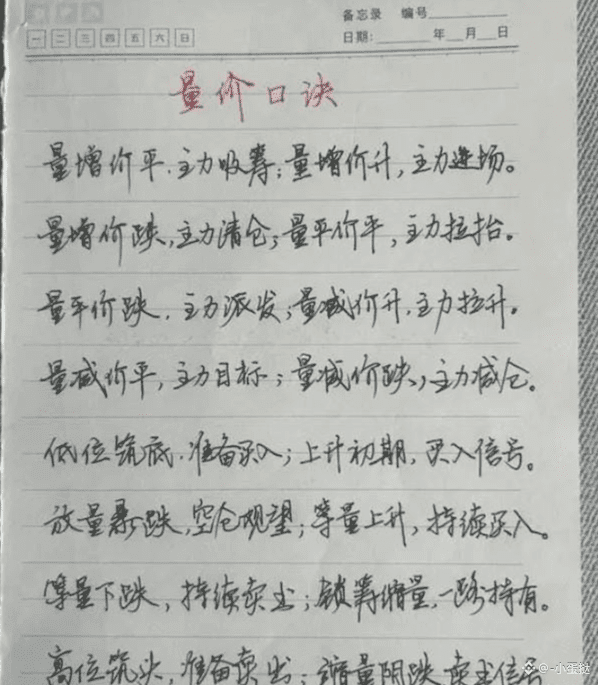 备忘录 编号
一 二 三 四 五 六 日 日期: 年 月 日
量价口诀
量增价平,主力吸筹;量增价升,主力进场。
量增价跌,主力清仓;量平价平,主力拉抬。
量平价跌,主力派发;量减价升,主力拉升。
量减价平,主力目标;量减价跌,主力减仓。
低位筑底,准备买入;上升初期,买入信号。
放量暴跌,空仓观望;等量上升,持续买入。
等量下跌,持续卖出;锁筹缩量,一路持有。
高位筑头,准备卖出;缩量阴跌,卖出信号
@-小蛋挞